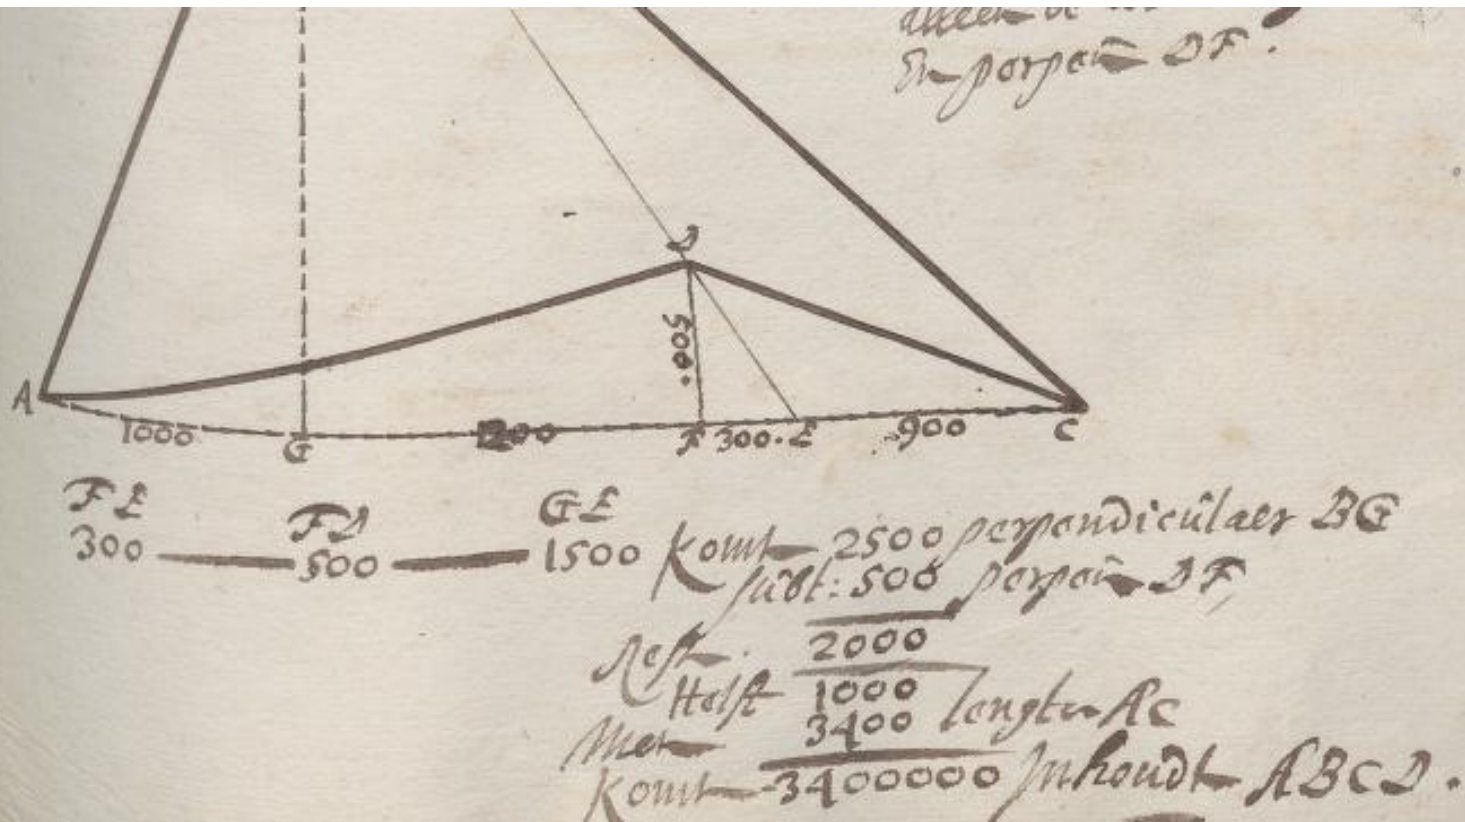 alleen de
En perpen DF.
D
500.
A
1000 G 1200 F 300. E 900 C
FE FD GE
300 500 1500
komt 2500 perpendiculaer BG
subt: 500 perpen DF,
Rest. 2000
Helft 1000
Met 3400 lengte AC
komt 3400000 Inhoudt ABCD.